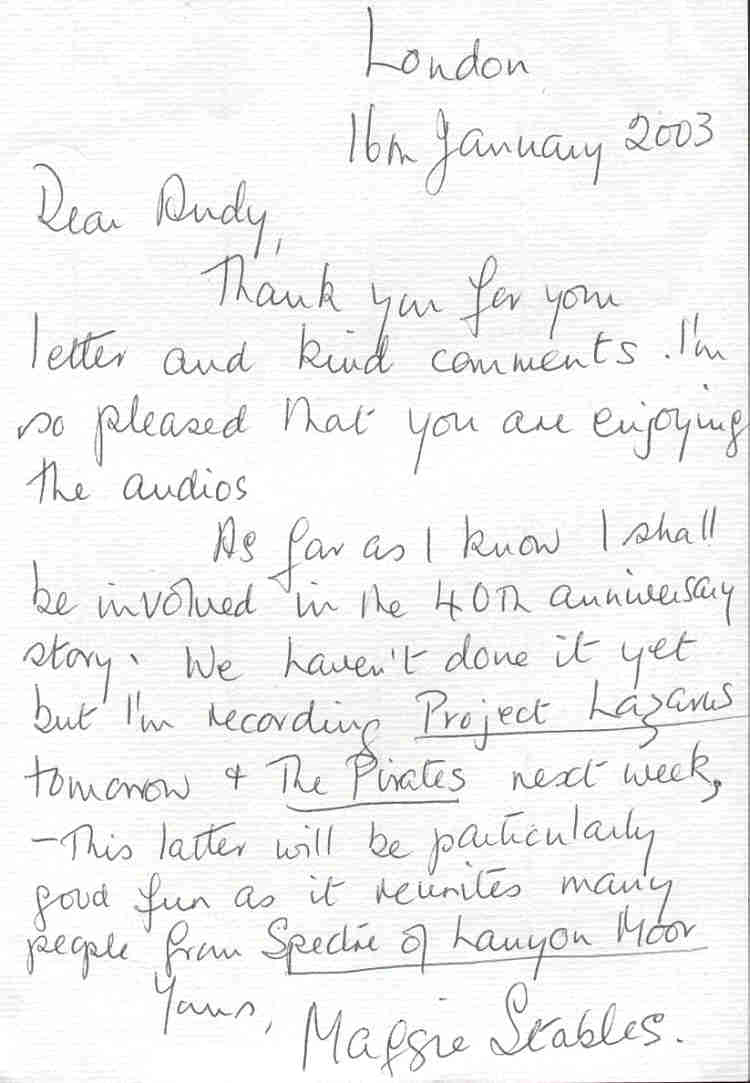 London
16th January 2003
Dear Andy,
Thank you for your
letter and kind comments. I'm
so pleased that you are enjoying
the audios
As far as I know I shall
be involved in the 40th anniversary
story. We haven't done it yet
but I'm recording Project Lazarus
tomorrow & The Pirates next week,
- This latter will be particularly
good fun as it reunites many
people from Spectre of Lanyon Moor
Yours,
Maggie Stables.